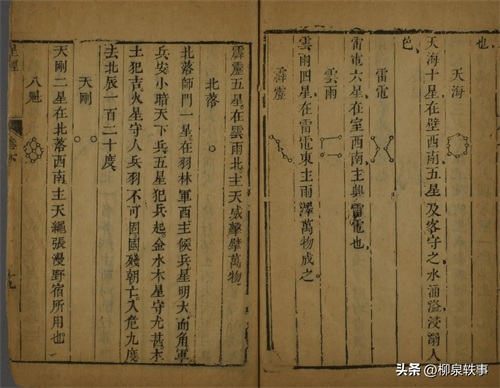 也
天海
天海十星在壁西南五星及客守之水涌溢浸溺人
也
雷電
雷電六星在室西南主興雷電也
雲雨
雲雨四星在雷電東主雨澤萬物成之
霹靂
霹靂五星在雲雨北主天威擊擘萬物
北落
北落師門一星在羽林軍西主候兵星明大而角軍
兵安小暗天下兵五星犯兵起金水木星守尤甚木
土犯吉火星守人兵羽不可固國殘朝亡入危九度
去北辰一百二十度
天剛
天剛二星在北落西南主天繩張漫野宿所用也
八魁
星經
卷下
十九
头条 @柳泉轶事